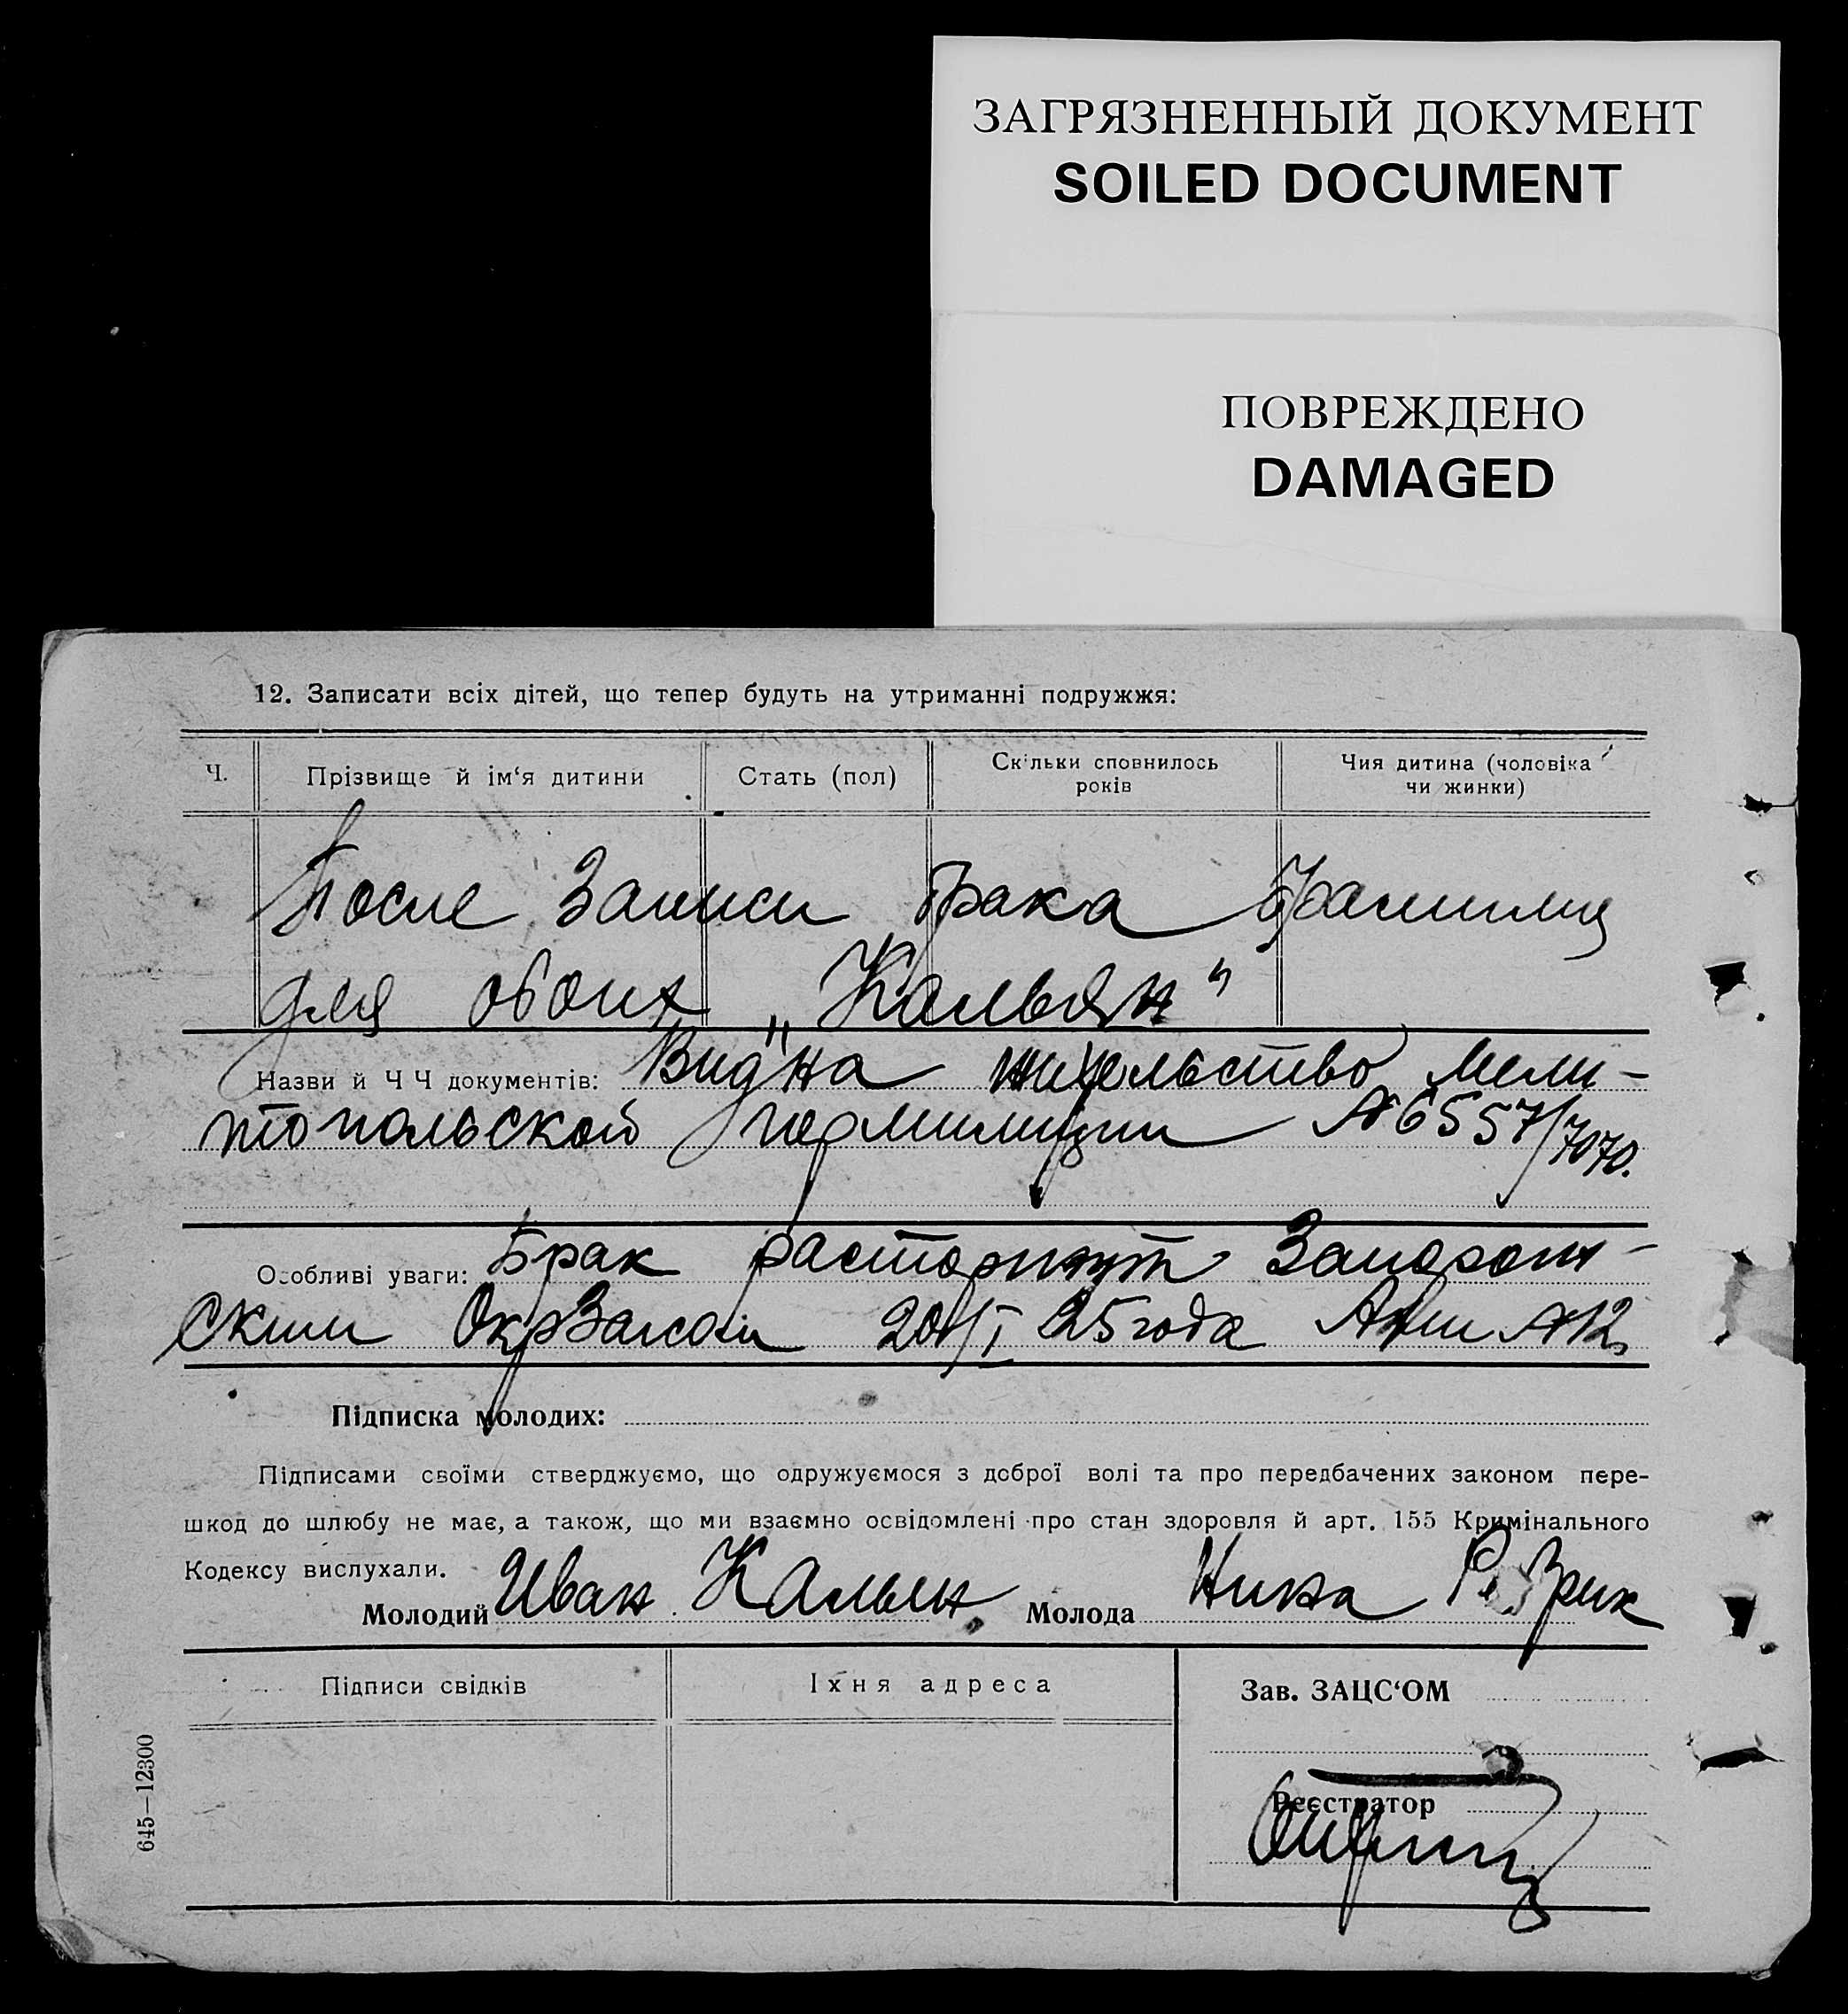 ЗАГРЯЗНЕННЫЙ ДОКУМЕНТ
SOILED DOCUMENT
ПОВРЕЖДЕНО
DAMAGED
12. Записати всіх дітей, що тепер будуть на утриманні подружжя:
Ч. Прізвище й ім‘я дитини Стать (пол) Скільки сповнилось років Чия дитина (чоловіка чи жинки)
После Записи брака фамилия
для обоих „Кальян“
Назви й Ч Ч документів: Вид на жительство Мели-
топольской гормилиции № 6557/7070.
Особливі уваги: Брак расторгнут Запорож-
ским ОкрЗагсом 20/I 25 года Акт №12
Підписка молодих:
Підписами своїми стверджуємо, що одружуємося з доброї волі та про передбачених законом пере-
шкод до шлюбу не має, а також, що ми взаємно освідомлені про стан здоровля й арт. 155 Кримінального
Кодексу вислухали.
Молодий Иван Кальян Молода Нина
Підписи свідків Іхня адреса Зав. ЗАЦС‘ОМ
Реєстратор
645—12300